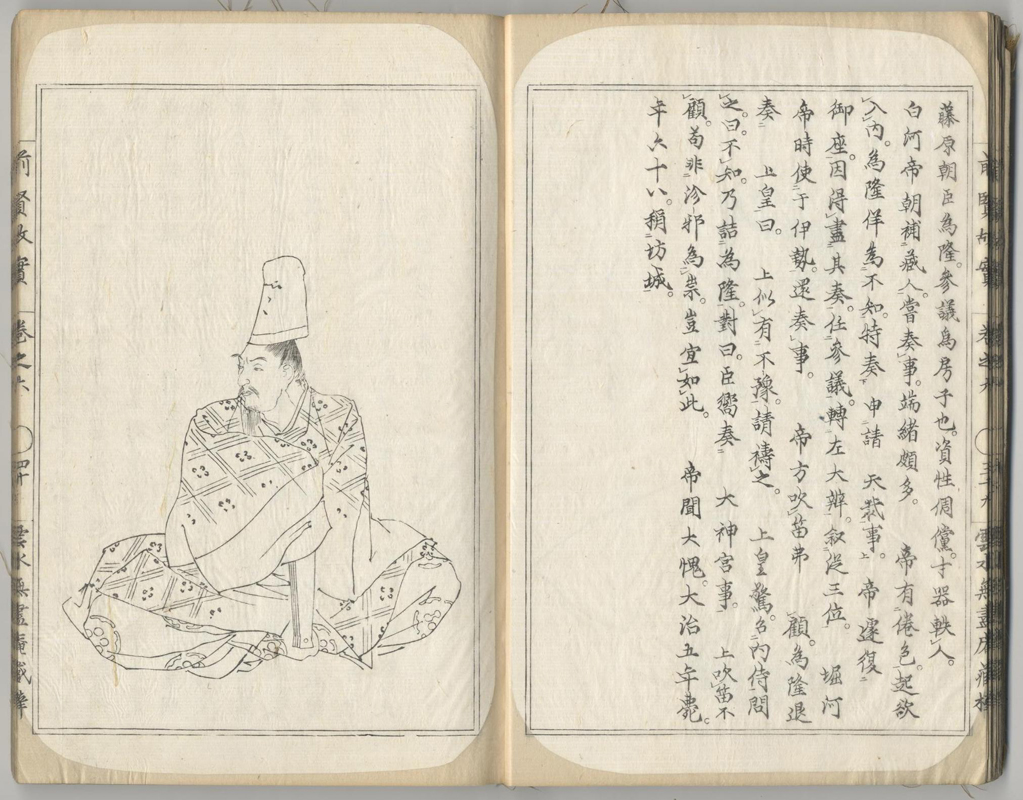 藤原朝臣為隆。參議為房子也。資性倜儻。才器軼人。
白河帝朝補藏人。嘗奏事。端緒頗多。 帝有倦色。起欲
入內。為隆佯為不知。特奏申請 天裁事。帝遽復
御座。因得盡其奏。任參議。轉左大辨。叙從三位。 堀河
帝時使于伊勢。還奏事。 帝方吹笛弗 顧。為隆退
奏 上皇曰。 上似有不豫。請禱之。 上皇驚。召內侍問
之。曰。不知。乃詰為隆。對曰。臣嚮奏 大神宮事。 上吹笛不
顧。苟非沴邪為祟。豈宜如此。 帝聞大愧。大治五年薨。
年六十八。稱坊城。
前賢故實 卷之六 ○四十 雲水無盡庵藏梓